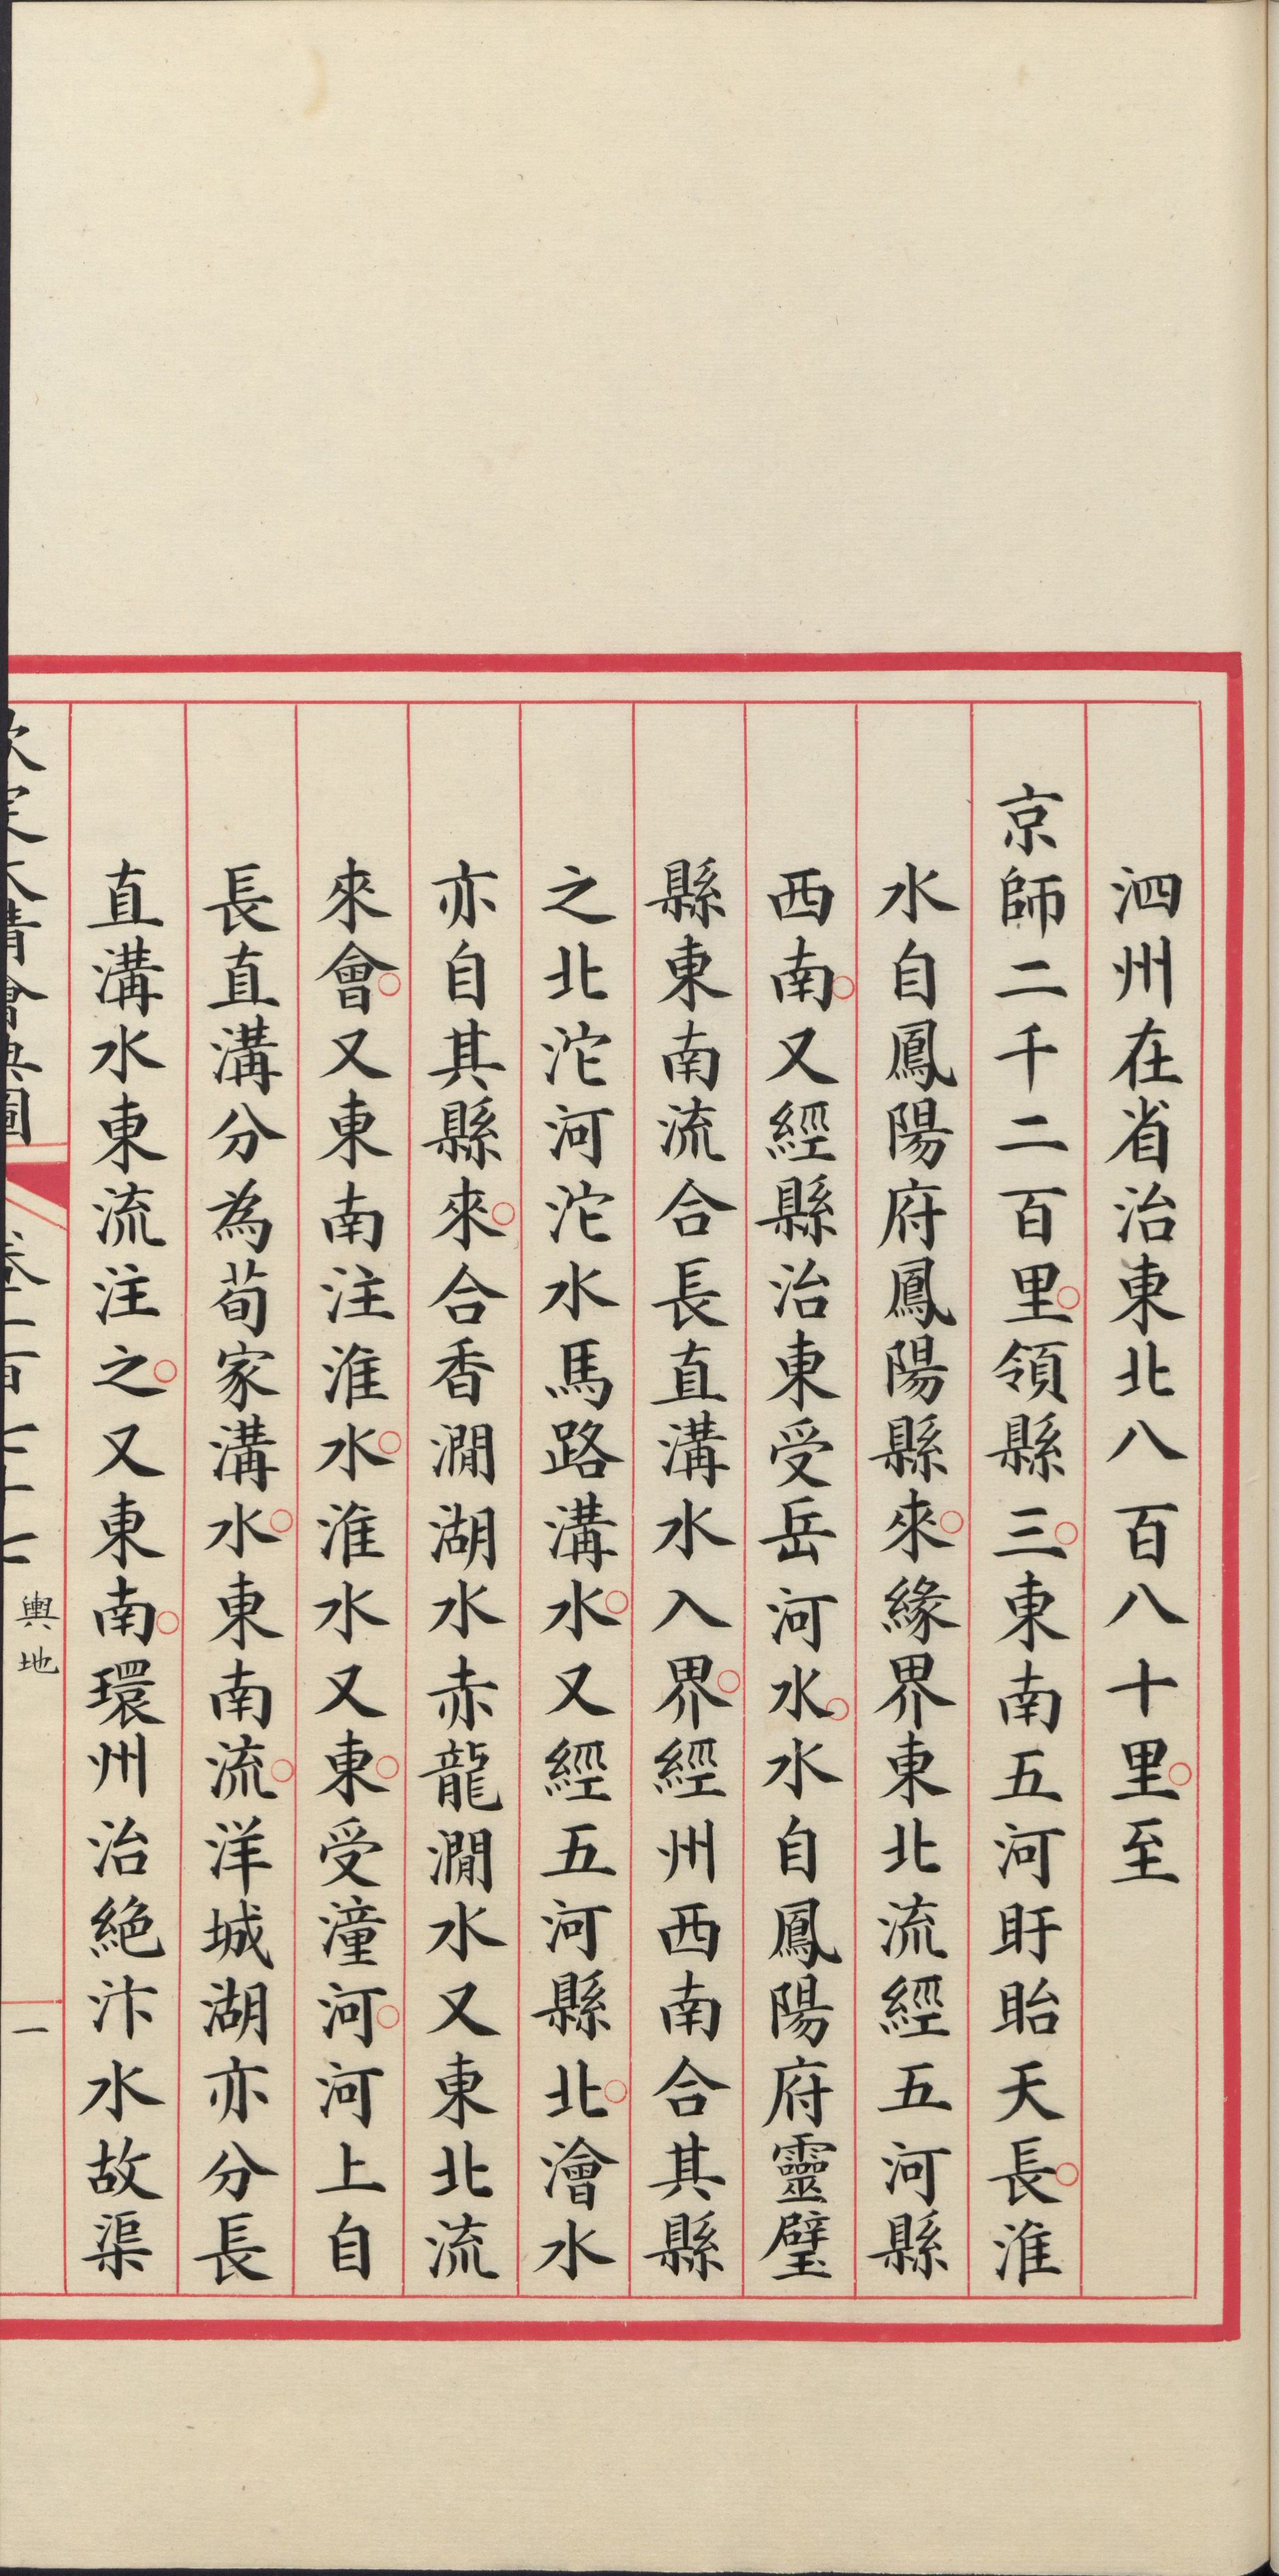 泗州在省治東北八百八十里。至
京師二千二百里。領縣三。東南五河盱眙天長。淮
水自鳳陽府鳳陽縣來。緣界東北流經五河縣
西南。又經縣治東受岳河水。水自鳳陽府靈璧
縣東南流合長直溝水入界。經州西南合其縣
之北沱河沱水馬路溝水。又經五河縣北。澮水
亦自其縣來。合香澗湖水赤龍澗水又東北流
來會。又東南注淮水。淮水又東。受潼河。河上自
長直溝分為荀家溝水。東南流。洋城湖亦分長
直溝水東流注之。又東南。環州治絶汴水故渠
輿地
一